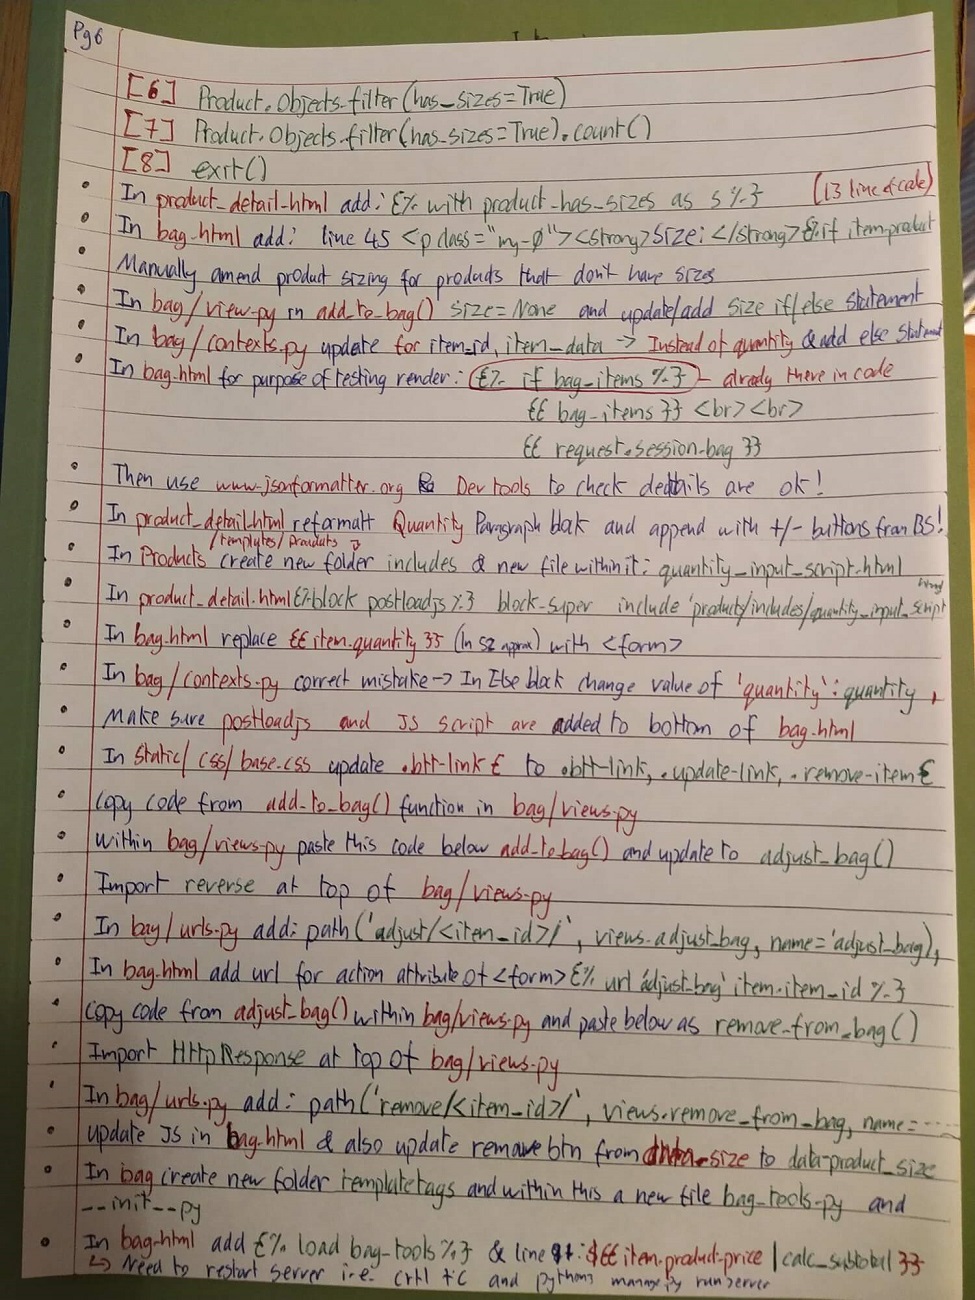 Pg 6
[6] Product.Objects.filter(has_sizes=True)
[7] Product.Objects.filter(has_sizes=True).count()
[8] exit()
• In product_detail.html add: {% with product.has_sizes as s %} (13 line of code)
• In bag.html add: line 45 <p class="my-0"><strong>Size: </strong>{% if item.product
Manually amend product sizing for products that don't have sizes
• In bag/view.py in add_to_bag() size=None and update/add size if/else statement
• In bag/contexts.py update for item_id, item_data → Instead of quantity & add else statement
• In bag.html for purpose of testing render: {% if bag_items %} - already there in code
{{ bag_items }} <br><br>
{{ request.session.bag }}
• Then use www.jsonformatter.org Dev tools to check details are ok!
• In product_detail.html reformatt Quantity Paragraph block and append with +/- buttons from BS!
/templates/products
• In Products create new folder includes & new file within it: quantity_input_script.html
• In product_detail.html {% block postloadjs %} block.super include 'products/includes/quantity_input_script.html
• In bag.html replace {{ item.quantity }} (ln 52 approx) with <form>
• In bag/contexts.py correct mistake → In Else block change value of 'quantity': quantity,
• Make sure postloadjs and JS script are added to bottom of bag.html
• In static/css/base.css update .btt-link { to .btt-link, .update-link, .remove-item {
• Copy code from add_to_bag() function in bag/views.py
• Within bag/views.py paste this code below add_to_bag() and update to adjust_bag()
• Import reverse at top of bag/views.py
• In bag/urls.py add: path('adjust/<item_id>/', views.adjust_bag, name='adjust_bag),
• In bag.html add url for action attribute of <form> {% url 'adjust_bag' item.item_id %}
• Copy code from adjust_bag() within bag/views.py and paste below as remove_from_bag()
• Import HttpResponse at top of bag/views.py
• In bag/urls.py add: path('remove/<item_id>/', views.remove_from_bag, name=.....
• update JS in bag.html & also update remove btn from data-size to data-product_size
• In bag create new folder templatetags and within this a new file bag_tools.py and
__init__.py
• In bag.html add {% load bag_tools %} & line : ${{ item.product.price | calc_subtotal }}
↳ Need to restart server i.e. crtl + C and python3 manage.py runserver